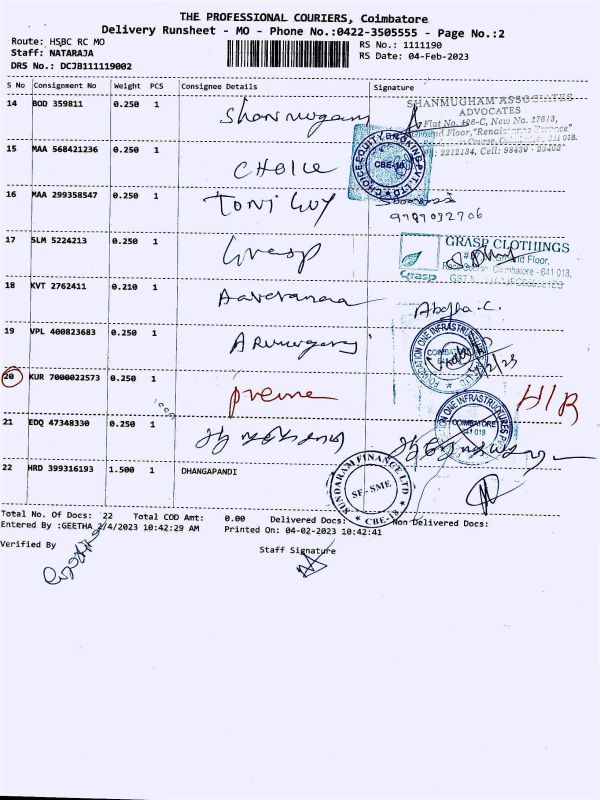 THE PROFESSIONAL COURIERS, Coimbatore
Delivery Runsheet - MO - Phone No.:0422-3505555 - Page No.:2
Route: HSBC RC MO
RS No.: 1111190
Staff: NATARAJA
RS Date: 04-Feb-2023
DRS No.: DCJB111119002
S No Consignment No Weight PCS Consignee Details Signature
14 BOD 359811 0.250 1 Shanmugam
SHANMUGHAM ASSOCIATES
ADVOCATES
15 MAA 568421236 0.250 1 CHOICE
CHOICE EQUITY BROKING PVT. LTD.
CBE-18
16 MAA 299358547 0.250 1 TONI GUY
9789032706
17 SLM 5224213 0.250 1 Grasp
GRASP CLOTHINGS
Grasp
Ground Floor,
Coimbatore - 641 018.
18 KVT 2762411 0.210 1
19 VPL 400823683 0.250 1
FOUNDATION ONE INFRASTRUCTURES
20 KUR 7000022573 0.250 1 preme H/R
21 EDQ 47348330 0.250 1
COIMBATORE
641 018
22 HRD 399316193 1.500 1 DHANGAPANDI
SUNDARAM FINANCE LTD
SF-SME
CBE-18
Total No. Of Docs: 22 Total COD Amt: 0.00 Delivered Docs: Non Delivered Docs:
Entered By :GEETHA 2/4/2023 10:42:29 AM Printed On: 04-02-2023 10:42:41
Verified By
Staff Signature